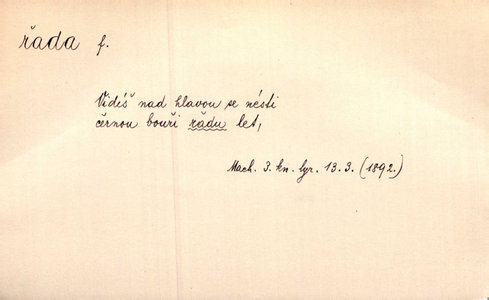 řada f.
Vidíš nad hlavou se nésti
černou bouři řadu let,
Mach. 3. kn. lyr. 13. 3. (1892.)